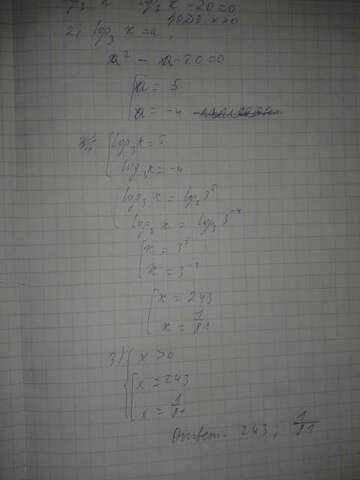 -20=0
ОДЗ x>0
2) log₃ x=a,
a² - a-20=0
[a = 5
a = -4
[log₃x=5
log₃x=-4
[log₃x = log₃3⁵
log₃x = log₃3⁻⁴
[x = 3⁵
x = 3⁻⁴
[x = 243
x = 1/81
3) {x >0
[x = 243
x = 1/81
Ответ. 243; 1/81